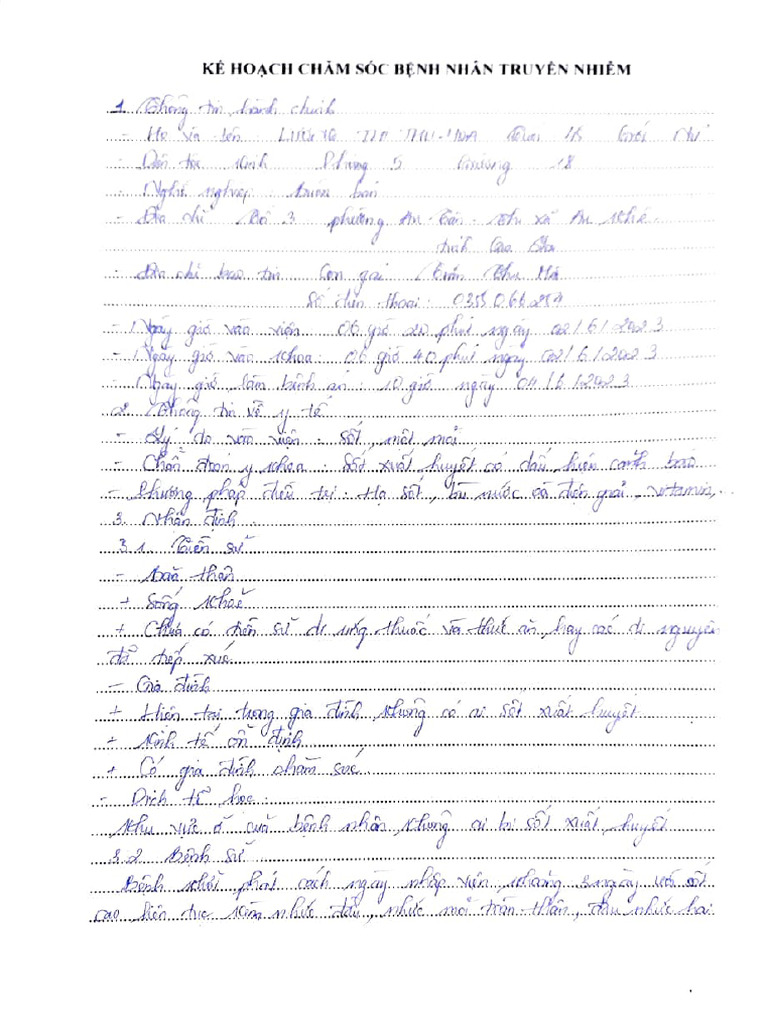 KẾ HOẠCH CHĂM SÓC BỆNH NHÂN TRUYỀN NHIỄM
1. Thông tin hành chính
- Họ và tên: LƯƠNG THỊ THU HOA Tuổi 45 Giới Nữ
- Dân tộc Kinh Phòng 5 Giường 18
- Nghề nghiệp: Buôn bán
- Địa chỉ Tổ 3 phường An Tân - thị xã An Khê -
tỉnh Gia Lai
- Địa chỉ báo tin Con gái Trần Thu Hà
Số điện thoại:
- Ngày giờ vào viện 06 giờ 20 phút ngày 02/6/2023
- Ngày giờ vào khoa: 06 giờ 40 phút ngày 02/6/2023
- Ngày giờ làm bệnh án: 10 giờ ngày 04/6/2023
2. Thông tin về y tế
- Lý do vào viện: sốt, mệt mỏi
- Chẩn đoán y khoa: Sốt xuất huyết có dấu hiệu cảnh báo
- Phương pháp điều trị: Hạ sốt, bù nước và điện giải, vitamin,..
3. Nhận định:
3.1. Tiền sử
- Bản thân
+ Sống khoẻ
+ Chưa có tiền sử dị ứng thuốc và thức ăn, hay các dị nguyên
đã tiếp xúc
- Gia đình
+ Hiện tại trong gia đình không có ai sốt xuất huyết
+ Kinh tế ổn định
+ Có gia đình chăm sóc.
- Dịch tể học:
Khu vực ở của bệnh nhân không ai bị sốt xuất huyết
3.2 Bệnh sử
Bệnh khởi phát cách ngày nhập viện khoảng 3 ngày với sốt
cao liên tục kèm nhức đầu, nhức mỏi toàn thân, đau nhức hai